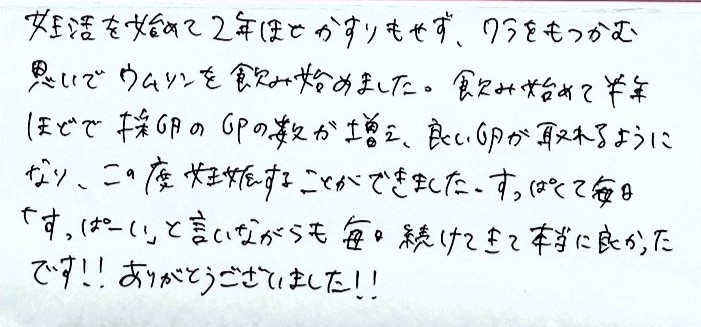 妊活を始めて2年ほどかすりもせず、ワラをもつかむ
思いでウムリンを飲み始めました。飲み始めて半年
ほどで採卵の卵の数が増え、良い卵が取れるように
なり、この度妊娠することができました。すっぱくて毎日
「すっぱーい」と言いながらも毎日続けてきて本当に良かった
です!!ありがとうございました!!